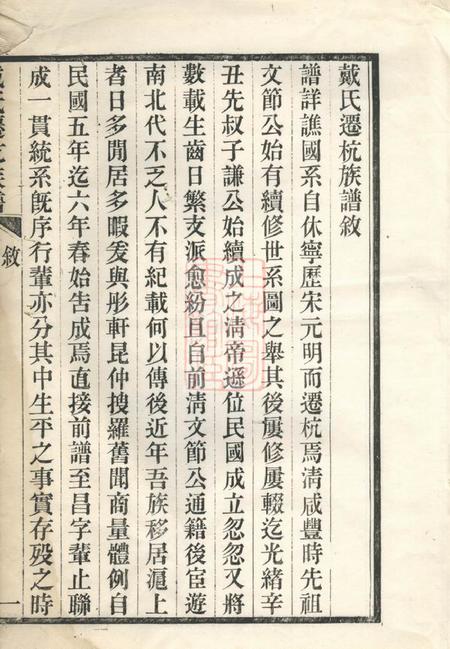 戴氏遷杭族譜敘
譜詳譙國系自休寧歷宋元明而遷杭焉清咸豐時先祖
文節公始有續修世系圖之舉其後屢修屢輟迄光緒辛
丑先叔子謙公始續成之清帝遜位民國成立忽忽又將
數載生齒日繁支派愈紛且自前清文節公通籍後宦遊
南北代不乏人不有紀載何以傳後近年吾族移居滬上
者日多閒居多暇爰與彤軒昆仲搜羅舊聞商量體例自
民國五年迄六年春始告成焉直接前譜至昌字輩止聯
成一貫統系旣序行輩亦分其中生平之事實存歿之時
戴氏遷杭族譜
敘
一